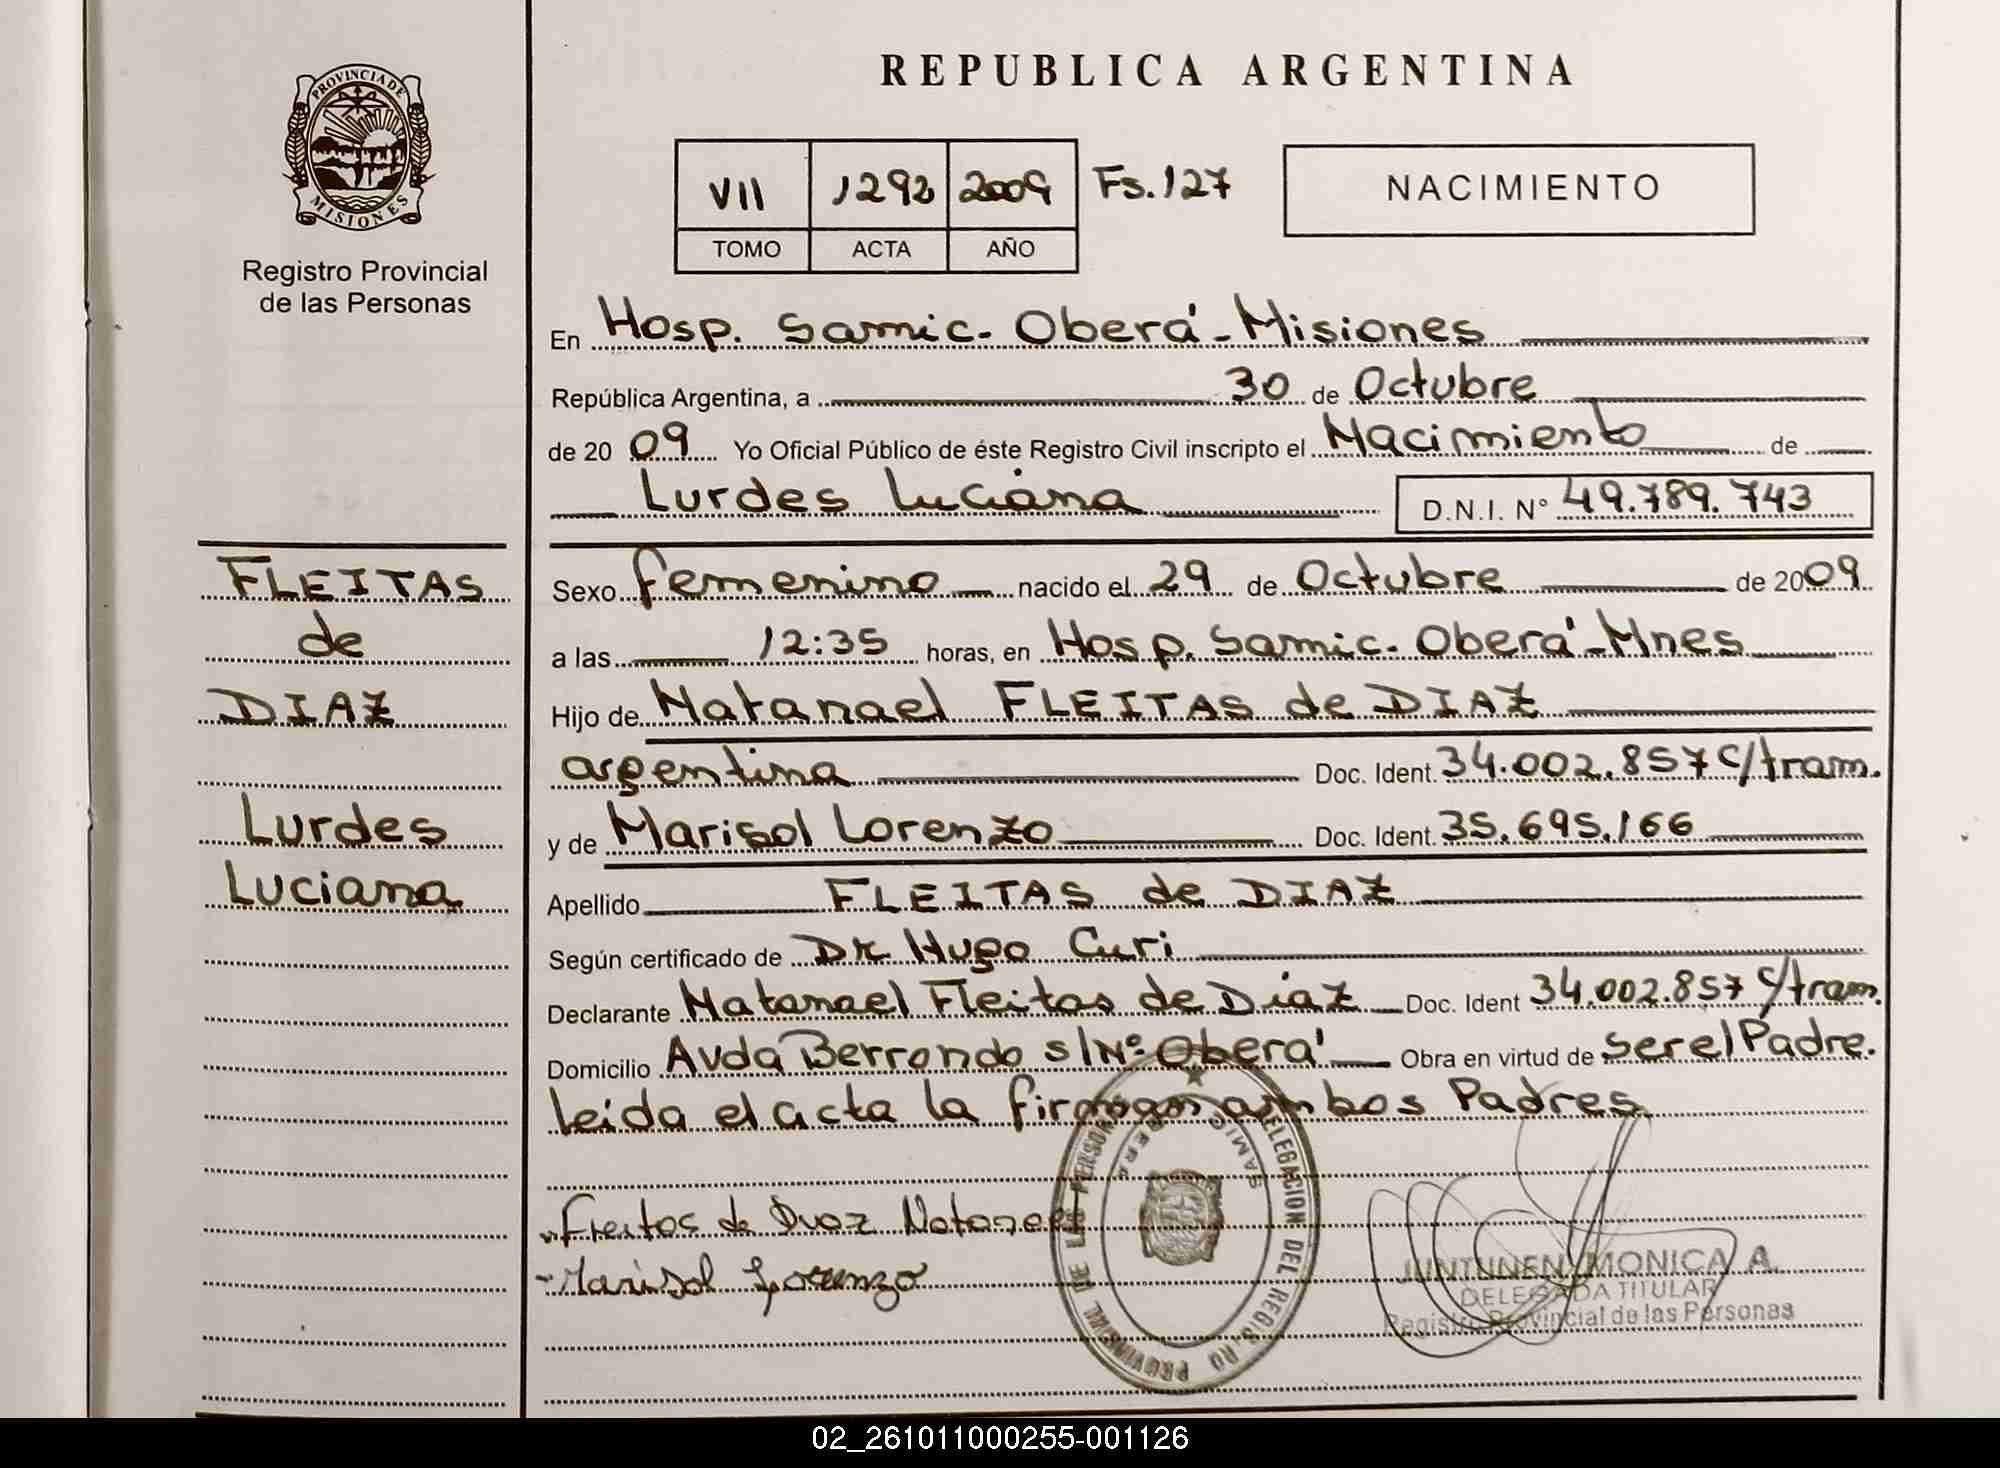 REPUBLICA ARGENTINA
PROVINCIA DE
MISIONES
Registro Provincial
de las Personas
VII 1292 2009 Fs. 127
TOMO ACTA AÑO
NACIMIENTO
En Hosp. Samic - Oberá - Misiones
República Argentina, a 30 de Octubre
de 2009 Yo Oficial Público de éste Registro Civil inscripto el Nacimiento de
Lurdes Luciana D.N.I. N° 49.789.743
FLEITAS
de
DIAZ
Lurdes
Luciana
Sexo femenino nacido el 29 de Octubre de 2009
a las 12:35 horas, en Hosp. Samic. Oberá - Mnes
Hijo de Natanael FLEITAS de DIAZ
argentina Doc. Ident. 34.002.857 C/tram.
y de Marisol Lorenzo Doc. Ident. 35.695.166
Apellido FLEITAS de DIAZ
Según certificado de Dr Hugo Curi
Declarante Natanael Fleitas de Diaz Doc. Ident 34.002.857 C/tram.
Domicilio Avda Berrondo s/Nº Oberá Obra en virtud de Ser el Padre.
leída el acta la firman ambos Padres
Fleitas de Diaz Natanael
Marisol Lorenzo
DELEGACION DEL REGISTRO PROVINCIAL DE LAS PERSONAS
SAMIC OBERA
JUNTUNEN MONICA A.
DELEGADA TITULAR
Registro Provincial de las Personas
02_261011000255-001126